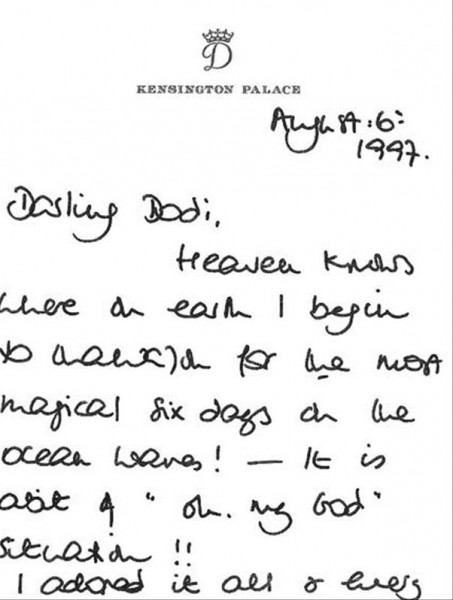 D
KENSINGTON PALACE
August.6:
1997.
Darling Dodi,
Heaven knows
where on earth I begin
to thank you for the most
magical six days on the
ocean waves! — It is
abit of "oh. my God"
situation!!
I adored it all &